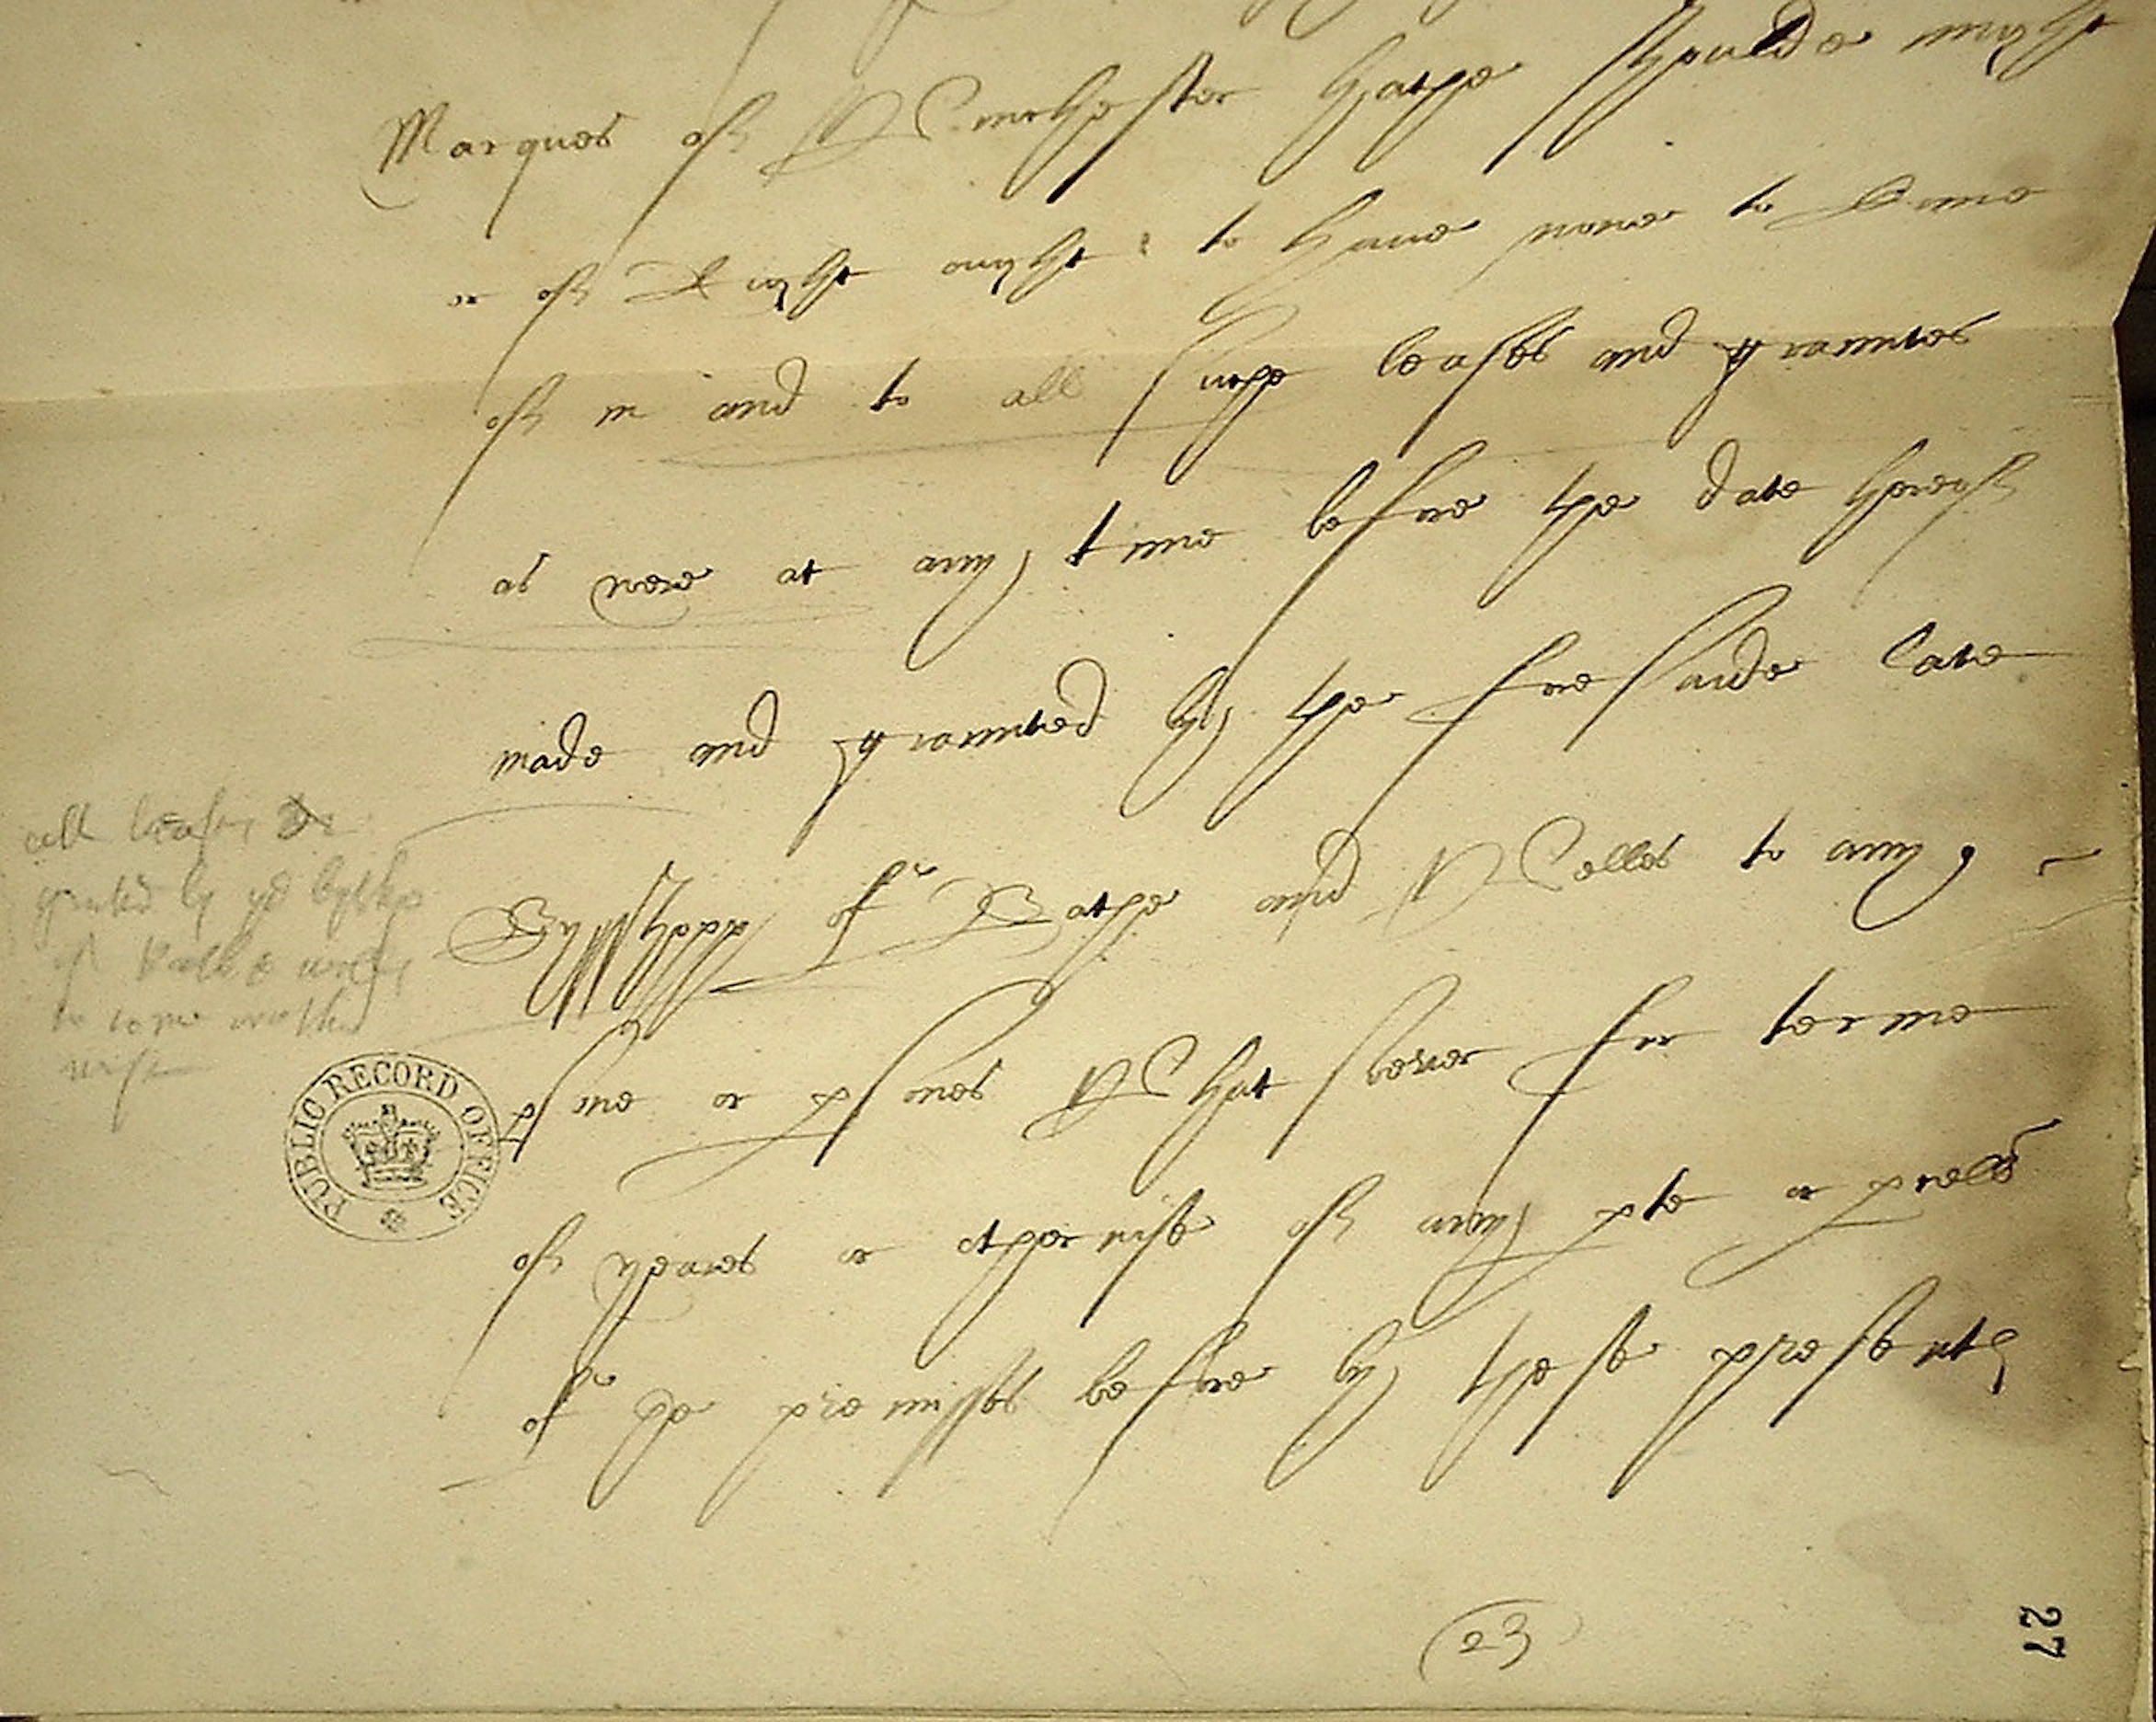 Marques of Winchester hathe shoulde might
or of Right ought to have nowe to Come
of in and to all suche leases and grauntes
as were at any time before the date hereof
made and graunted by the foresaide late
Bysshopp of Bathe and Welles to any
psone or psones Whatsoever for terme
of yeares or otherwise of any pte or pcells
of the premisses before by these presents
all leases
by ye bysshop
of Bathe
to
wise
PUBLIC RECORD OFFICE
23
27